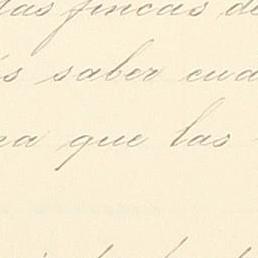 las fincas de
s saber cua
na que las